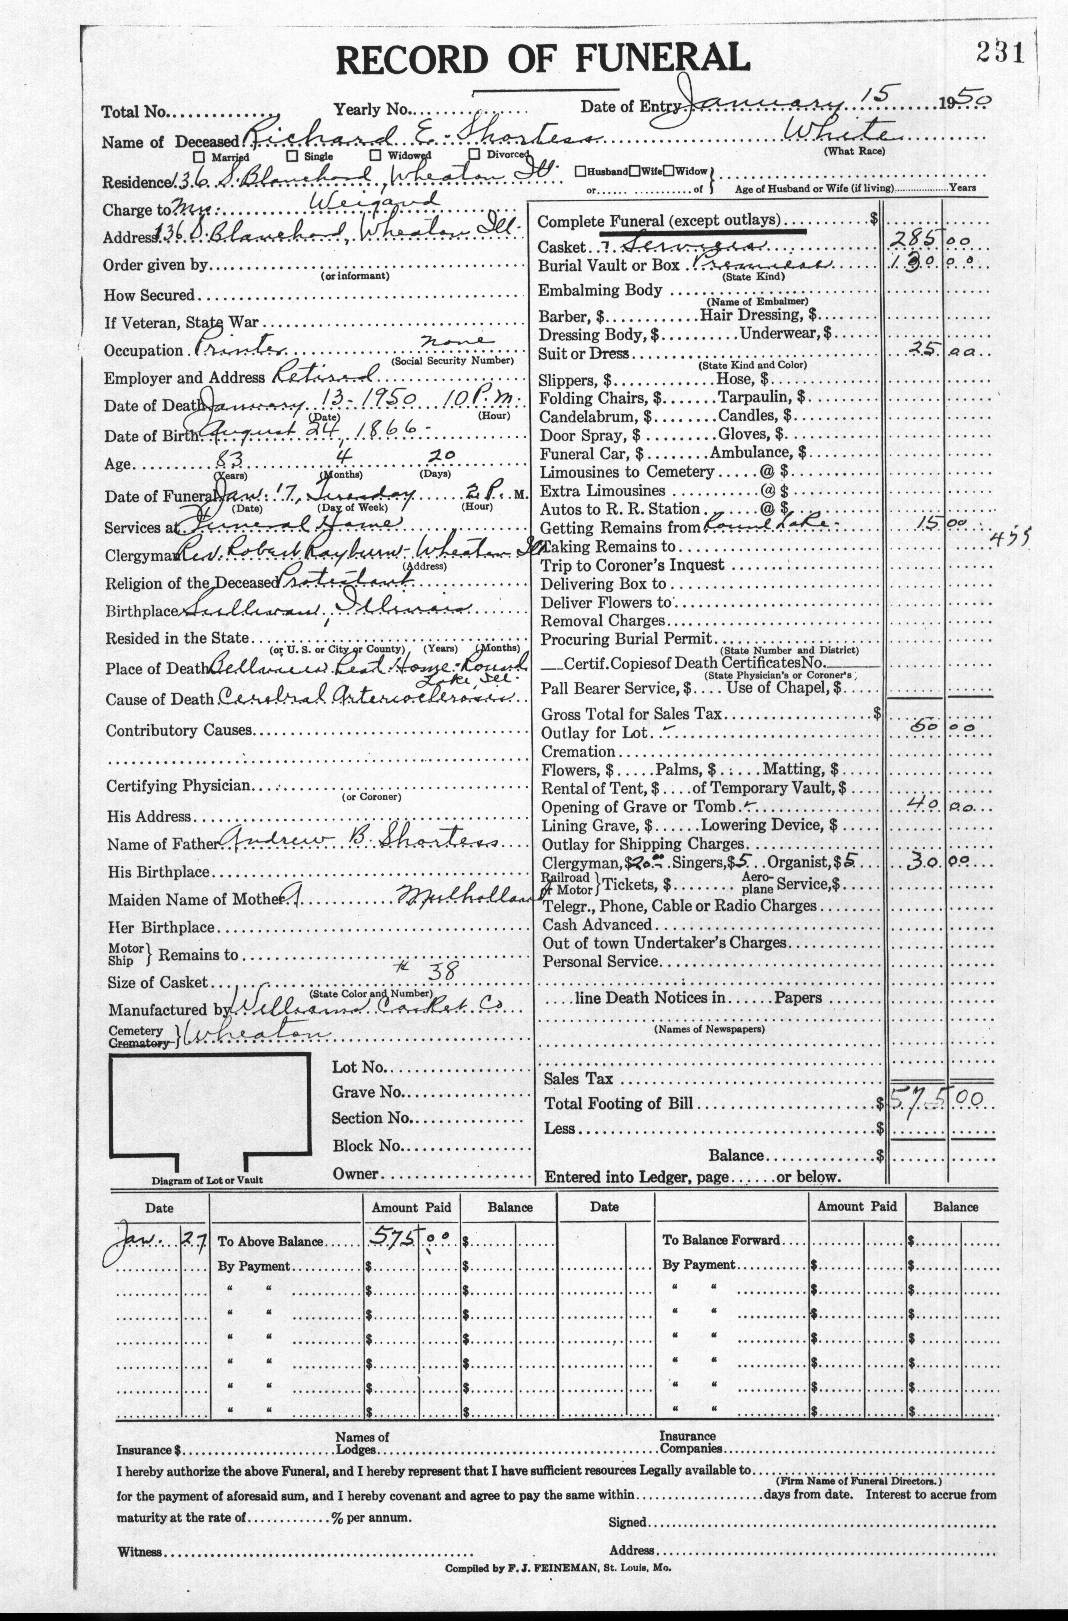 231
RECORD OF FUNERAL
Total No. Yearly No. Date of Entry January 15 1950
Name of Deceased Richard E. Shortess White
Married Single Widowed Divorced (What Race)
Residence 136 S. Blanchard, Wheaton Ill. Husband Wife Widow
or of Age of Husband or Wife (if living) Years
Charge to Mr. Weigand
Address 136 S. Blanchard, Wheaton Ill.
Order given by
(or informant)
How Secured
If Veteran, State War
Occupation Printer none
(Social Security Number)
Employer and Address Retired
Date of Death January 13-1950 10 P.m.
(Date) (Hour)
Date of Birth August 24, 1866-
Age 83 4 20
(Years) (Months) (Days)
Date of Funeral Jan. 17, Tuesday 2 P. M.
(Date) (Day of Week) (Hour)
Services at Funeral Home
Clergyman Rev. Robert Rayburn- Wheaton Ill
(Address)
Religion of the Deceased Protestant
Birthplace Sullivan, Illinois
Resided in the State
(or U. S. or City or County) (Years) (Months)
Place of Death Bellview Rest Home- Round
Lake Ill.
Cause of Death Cerebral Arteriosclerosis
Contributory Causes
Certifying Physician
(or Coroner)
His Address
Name of Father Andrew B. Shortess
His Birthplace
Maiden Name of Mother Mulholland
Her Birthplace
Motor
Ship } Remains to
Size of Casket # 38
(State Color and Number)
Manufactured by Williams Casket Co
Cemetery
Crematory } Wheaton
Lot No.
Grave No.
Section No.
Block No.
Owner
Diagram of Lot or Vault
Complete Funeral (except outlays) $
Casket & Services 285 00
Burial Vault or Box 130 00
(State Kind)
Embalming Body
(Name of Embalmer)
Barber, $ Hair Dressing, $
Dressing Body, $ Underwear, $
Suit or Dress 25 00
(State Kind and Color)
Slippers, $ Hose, $
Folding Chairs, $ Tarpaulin, $
Candelabrum, $ Candles, $
Door Spray, $ Gloves, $
Funeral Car, $ Ambulance, $
Limousines to Cemetery @ $
Extra Limousines @ $
Autos to R. R. Station @ $
Getting Remains from Round Lake- 15 00
455
Taking Remains to
Trip to Coroner's Inquest
Delivering Box to
Deliver Flowers to
Removal Charges
Procuring Burial Permit
(State Number and District)
Certif. Copies of Death Certificates No.
(State Physician's or Coroner's)
Pall Bearer Service, $ Use of Chapel, $
Gross Total for Sales Tax $
Outlay for Lot 50 00
Cremation
Flowers, $ Palms, $ Matting, $
Rental of Tent, $ of Temporary Vault, $
Opening of Grave or Tomb 40 00
Lining Grave, $ Lowering Device, $
Outlay for Shipping Charges
Clergyman, $20.00 Singers, $5 Organist, $5 30 00
Railroad
or Motor } Tickets, $ Aero-
plane Service, $
Telegr., Phone, Cable or Radio Charges
Cash Advanced
Out of town Undertaker's Charges
Personal Service
line Death Notices in Papers
(Names of Newspapers)
Sales Tax
Total Footing of Bill $ 575 00
Less $
Balance $
Entered into Ledger, page or below.
Date Amount Paid Balance Date Amount Paid Balance
Jan. 27 To Above Balance 575 00 $ To Balance Forward $
By Payment $ $ By Payment $ $
" " $ $ " " $ $
" " $ $ " " $ $
" " $ $ " " $ $
" " $ $ " " $ $
" " $ $ " " $ $
" " $ $ " " $ $
Insurance $ Names of
Lodges Insurance
Companies
I hereby authorize the above Funeral, and I hereby represent that I have sufficient resources Legally available to
(Firm Name of Funeral Directors.)
for the payment of aforesaid sum, and I hereby covenant and agree to pay the same within days from date. Interest to accrue from
maturity at the rate of % per annum.
Signed
Witness Address
Compiled by F. J. FEINEMAN, St. Louis, Mo.